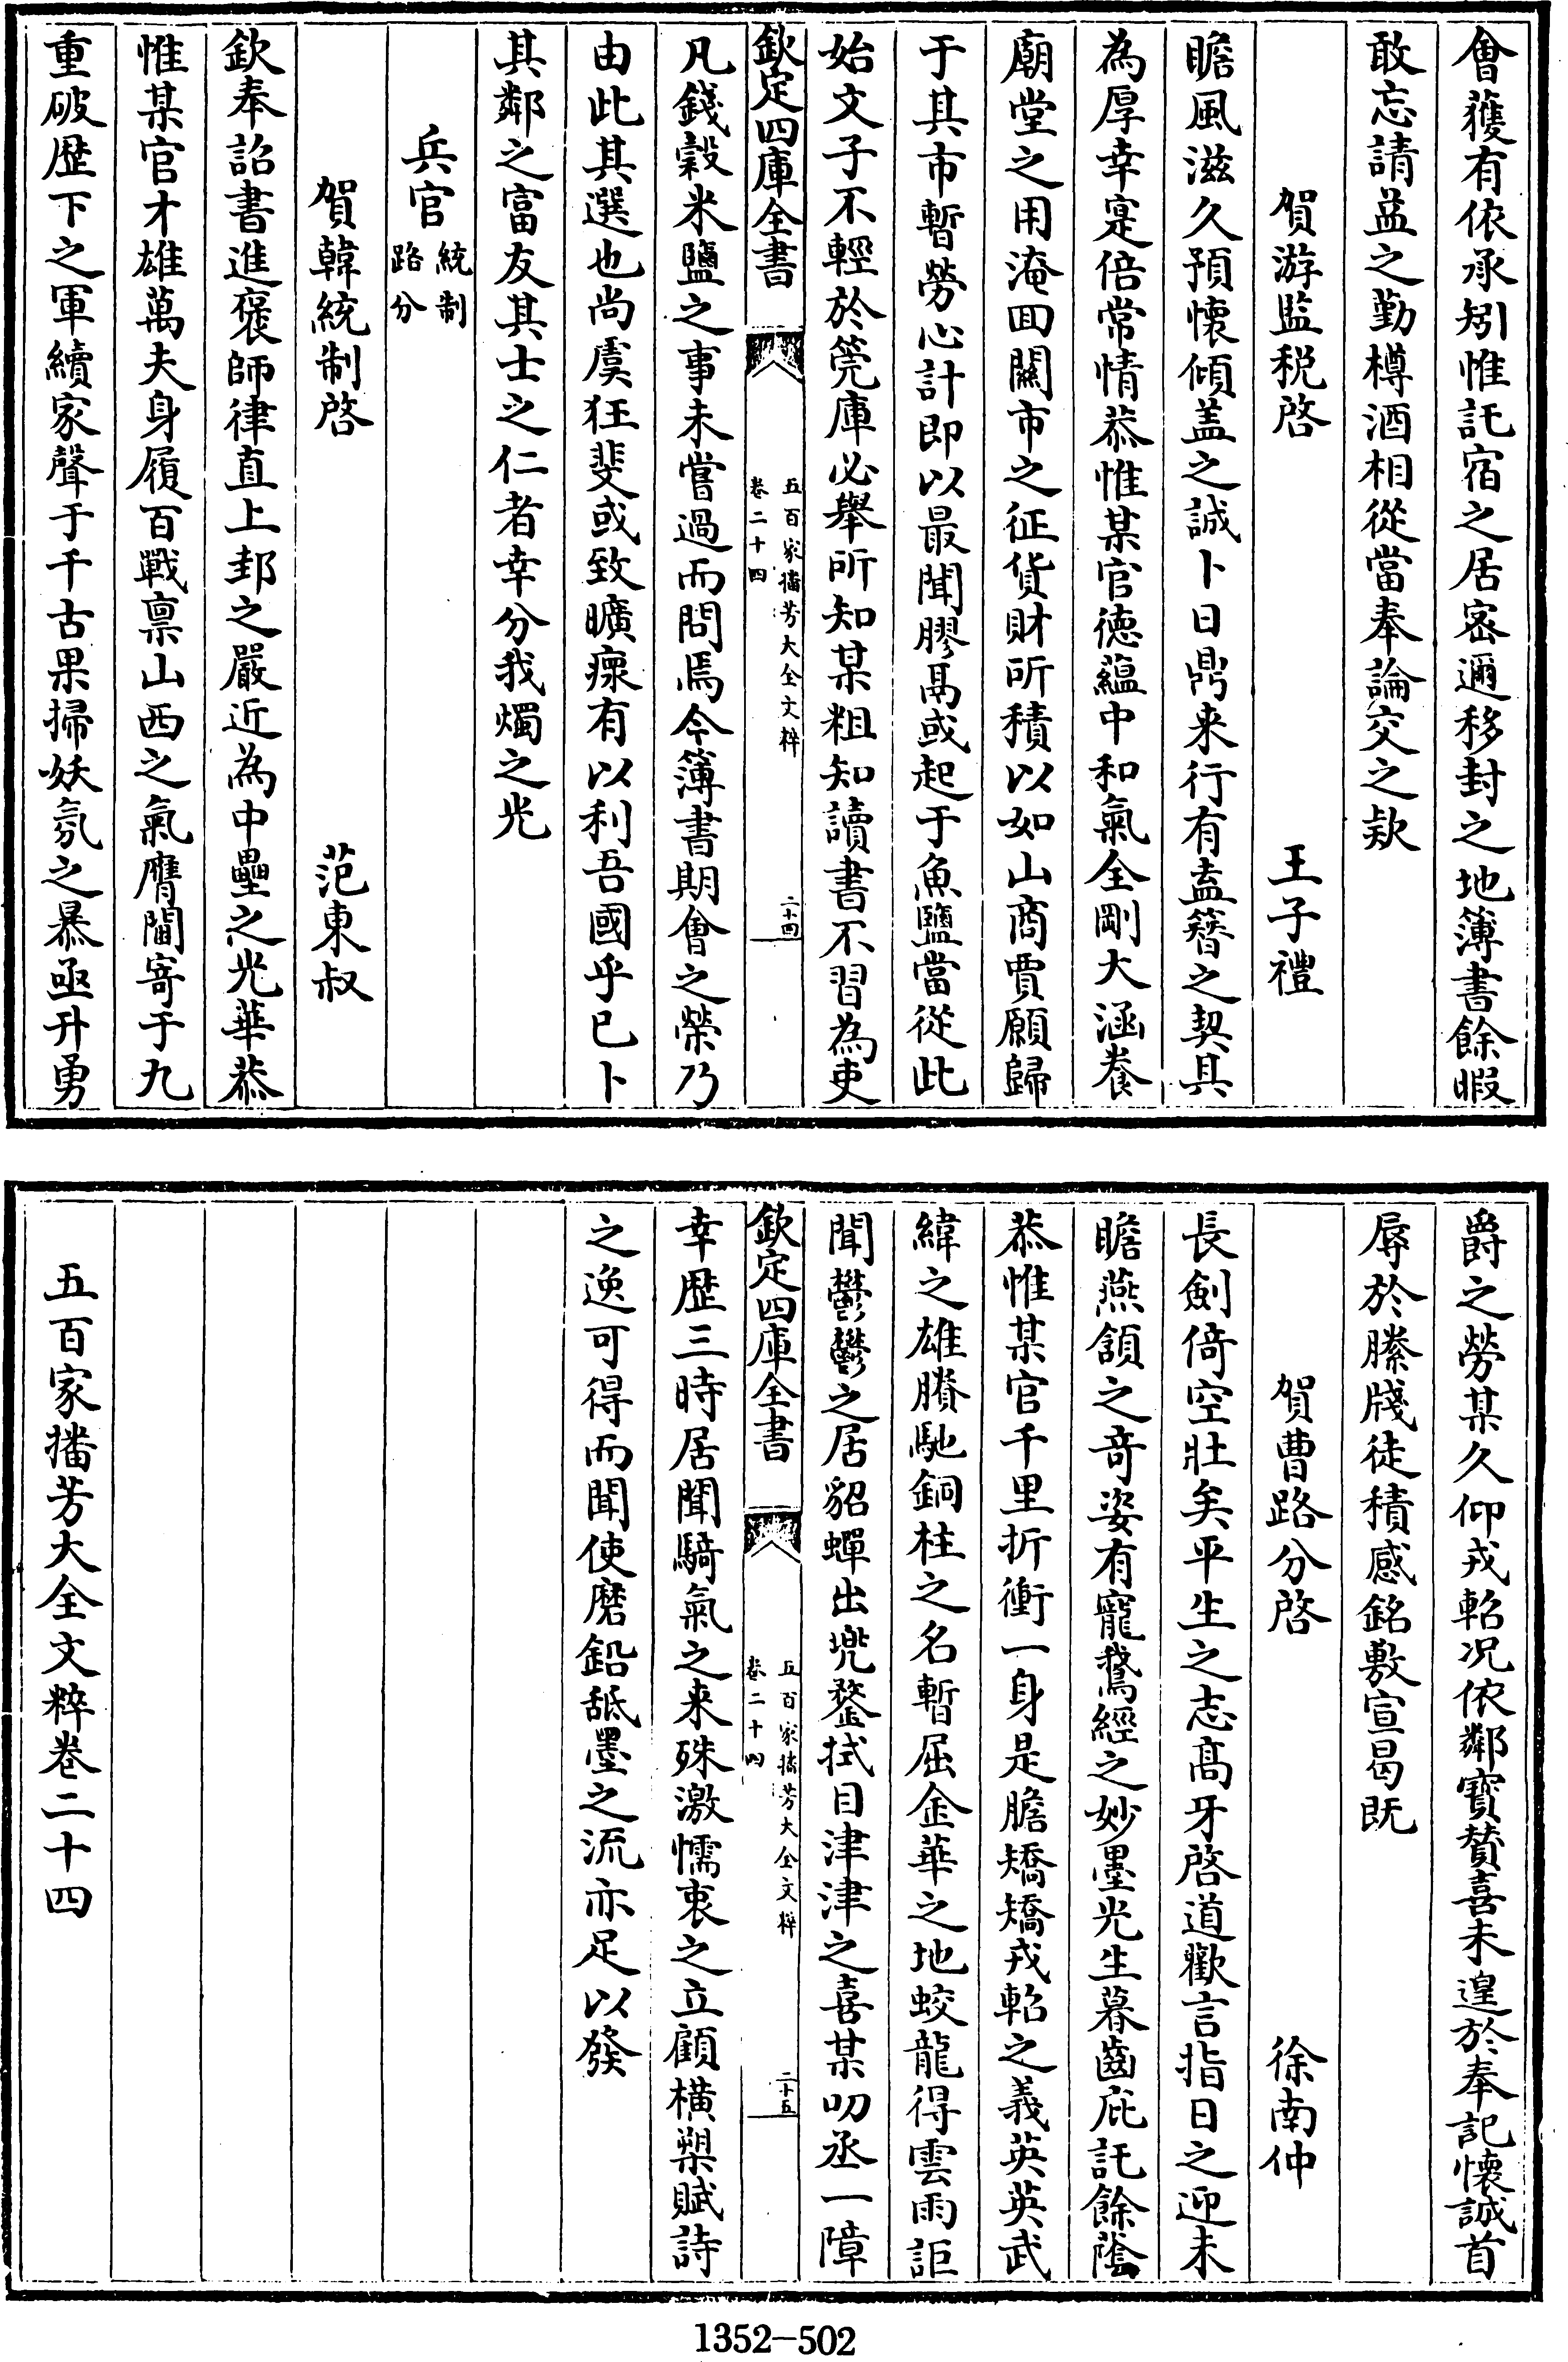 會獲有依承矧惟託宿之居密邇移封之地簿書餘暇
敢忘請益之勤樽酒相從當奉論交之欵
賀游監税啓　王子禮
瞻風滋久預懷傾盖之誠卜日鼎来行有盍簪之契具
為厚幸寔倍常情恭惟某官徳藴中和氣全剛大涵養
廟堂之用淹回闗市之征貨財所積以如山商賈願歸
于其市暫勞心計即以最聞膠鬲或起于魚鹽當從此
始文子不輕於筦庫必舉所知某粗知讀書不習為吏
欽定四庫全書
五百家播芳大全文粹
卷二十四
二十四
凡錢穀米鹽之事未嘗過而問焉今簿書期會之榮乃
由此其選也尚虞狂斐或致曠瘝有以利吾國乎已卜
其鄰之富友其士之仁者幸分我燭之光
兵官 統制 路分
賀韓統制啓　范東叔
欽奉詔書進褒師律直上邽之嚴近為中壘之光華恭
惟某官才雄萬夫身履百戰禀山西之氣膺閫寄于九
重破歴下之軍續家聲于千古果掃妖氛之暴亟升勇
爵之勞某久仰戎軺况依鄰寳賛喜未遑於奉記懷誠首
辱於縢牋徒積感銘敷宣曷既
賀曹路分啓　徐南仲
長劍倚空壯矣平生之志髙牙啓道歡言指日之迎未
瞻燕頷之竒姿有寵鵞經之妙墨光生暮齒庇託餘蔭
恭惟某官千里折衝一身是膽矯矯戎軺之義英英武
緯之雄賸馳銅柱之名暫屈金華之地蛟龍得雲雨詎
聞鬱鬱之居貂蟬出兠鍪拭目津津之喜某叨丞一障
欽定四庫全書
五百家播芳大全文粹
卷二十四
二十五
幸歴三時居聞騎氣之来殊激懦衷之立顧横槊賦詩
之逸可得而聞使磨鉛舐墨之流亦足以發
五百家播芳大全文粹卷二十四
1352-502